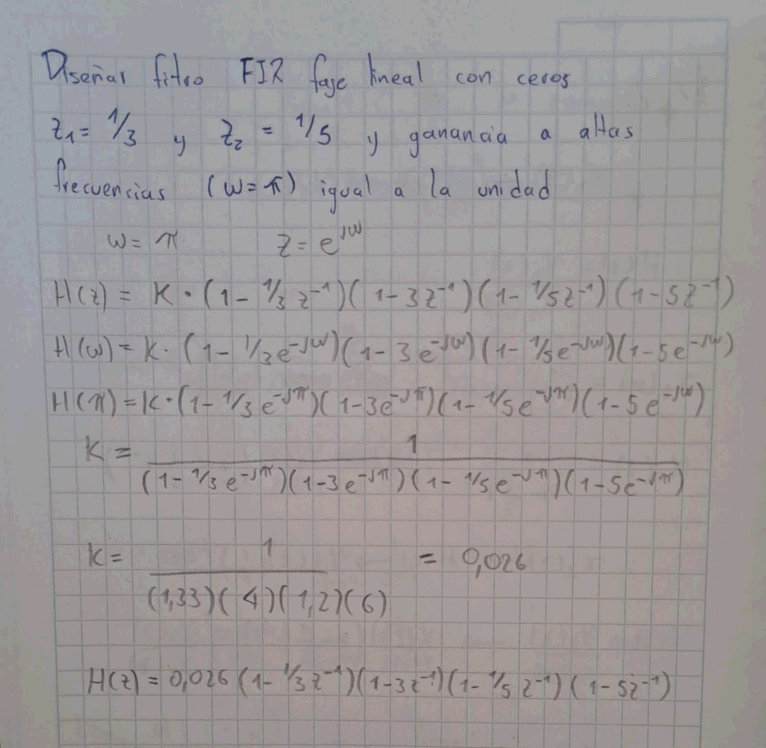 Diseñar filtro FIR fase lineal con ceros
z₁ = 1/3 y z₂ = 1/5 y ganancia a altas
frecuencias (ω = π) igual a la unidad
ω = π z = e^jω
H(z) = K · (1 - 1/3 z⁻¹)(1 - 3z⁻¹)(1 - 1/5z⁻¹)(1 - 5z⁻¹)
H(ω) = K · (1 - 1/3e^-jω)(1 - 3e^-jω)(1 - 1/5e^-jω)(1 - 5e^-jω)
H(π) = K · (1 - 1/3e^-jπ)(1 - 3e^-jπ)(1 - 1/5e^-jπ)(1 - 5e^-jω)
K = 1
(1 - 1/3e^-jπ)(1 - 3e^-jπ)(1 - 1/5e^-jπ)(1 - 5e^-jπ)
K = 1 = 0,026
(1,33)(4)(1,2)(6)
H(z) = 0,026 (1 - 1/3z⁻¹)(1 - 3z⁻¹)(1 - 1/5 z⁻¹)(1 - 5z⁻¹)